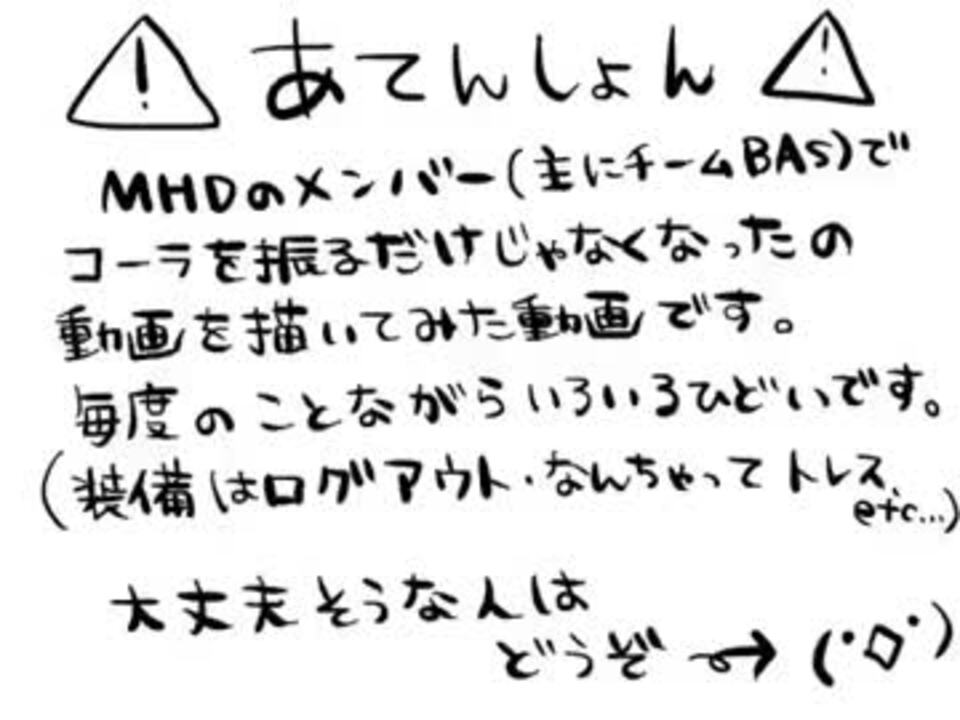 ⚠ あてんしょん ⚠
MHDのメンバー(主にチームBAS)で
コーラを振るだけじゃなくなったの
動画を描いてみた動画です。
毎度のことながらいろいろひどいです。
(装備はログアウト・なんちゃってトレス etc...)
大丈夫そうな人は
どうぞ → (・◇・)